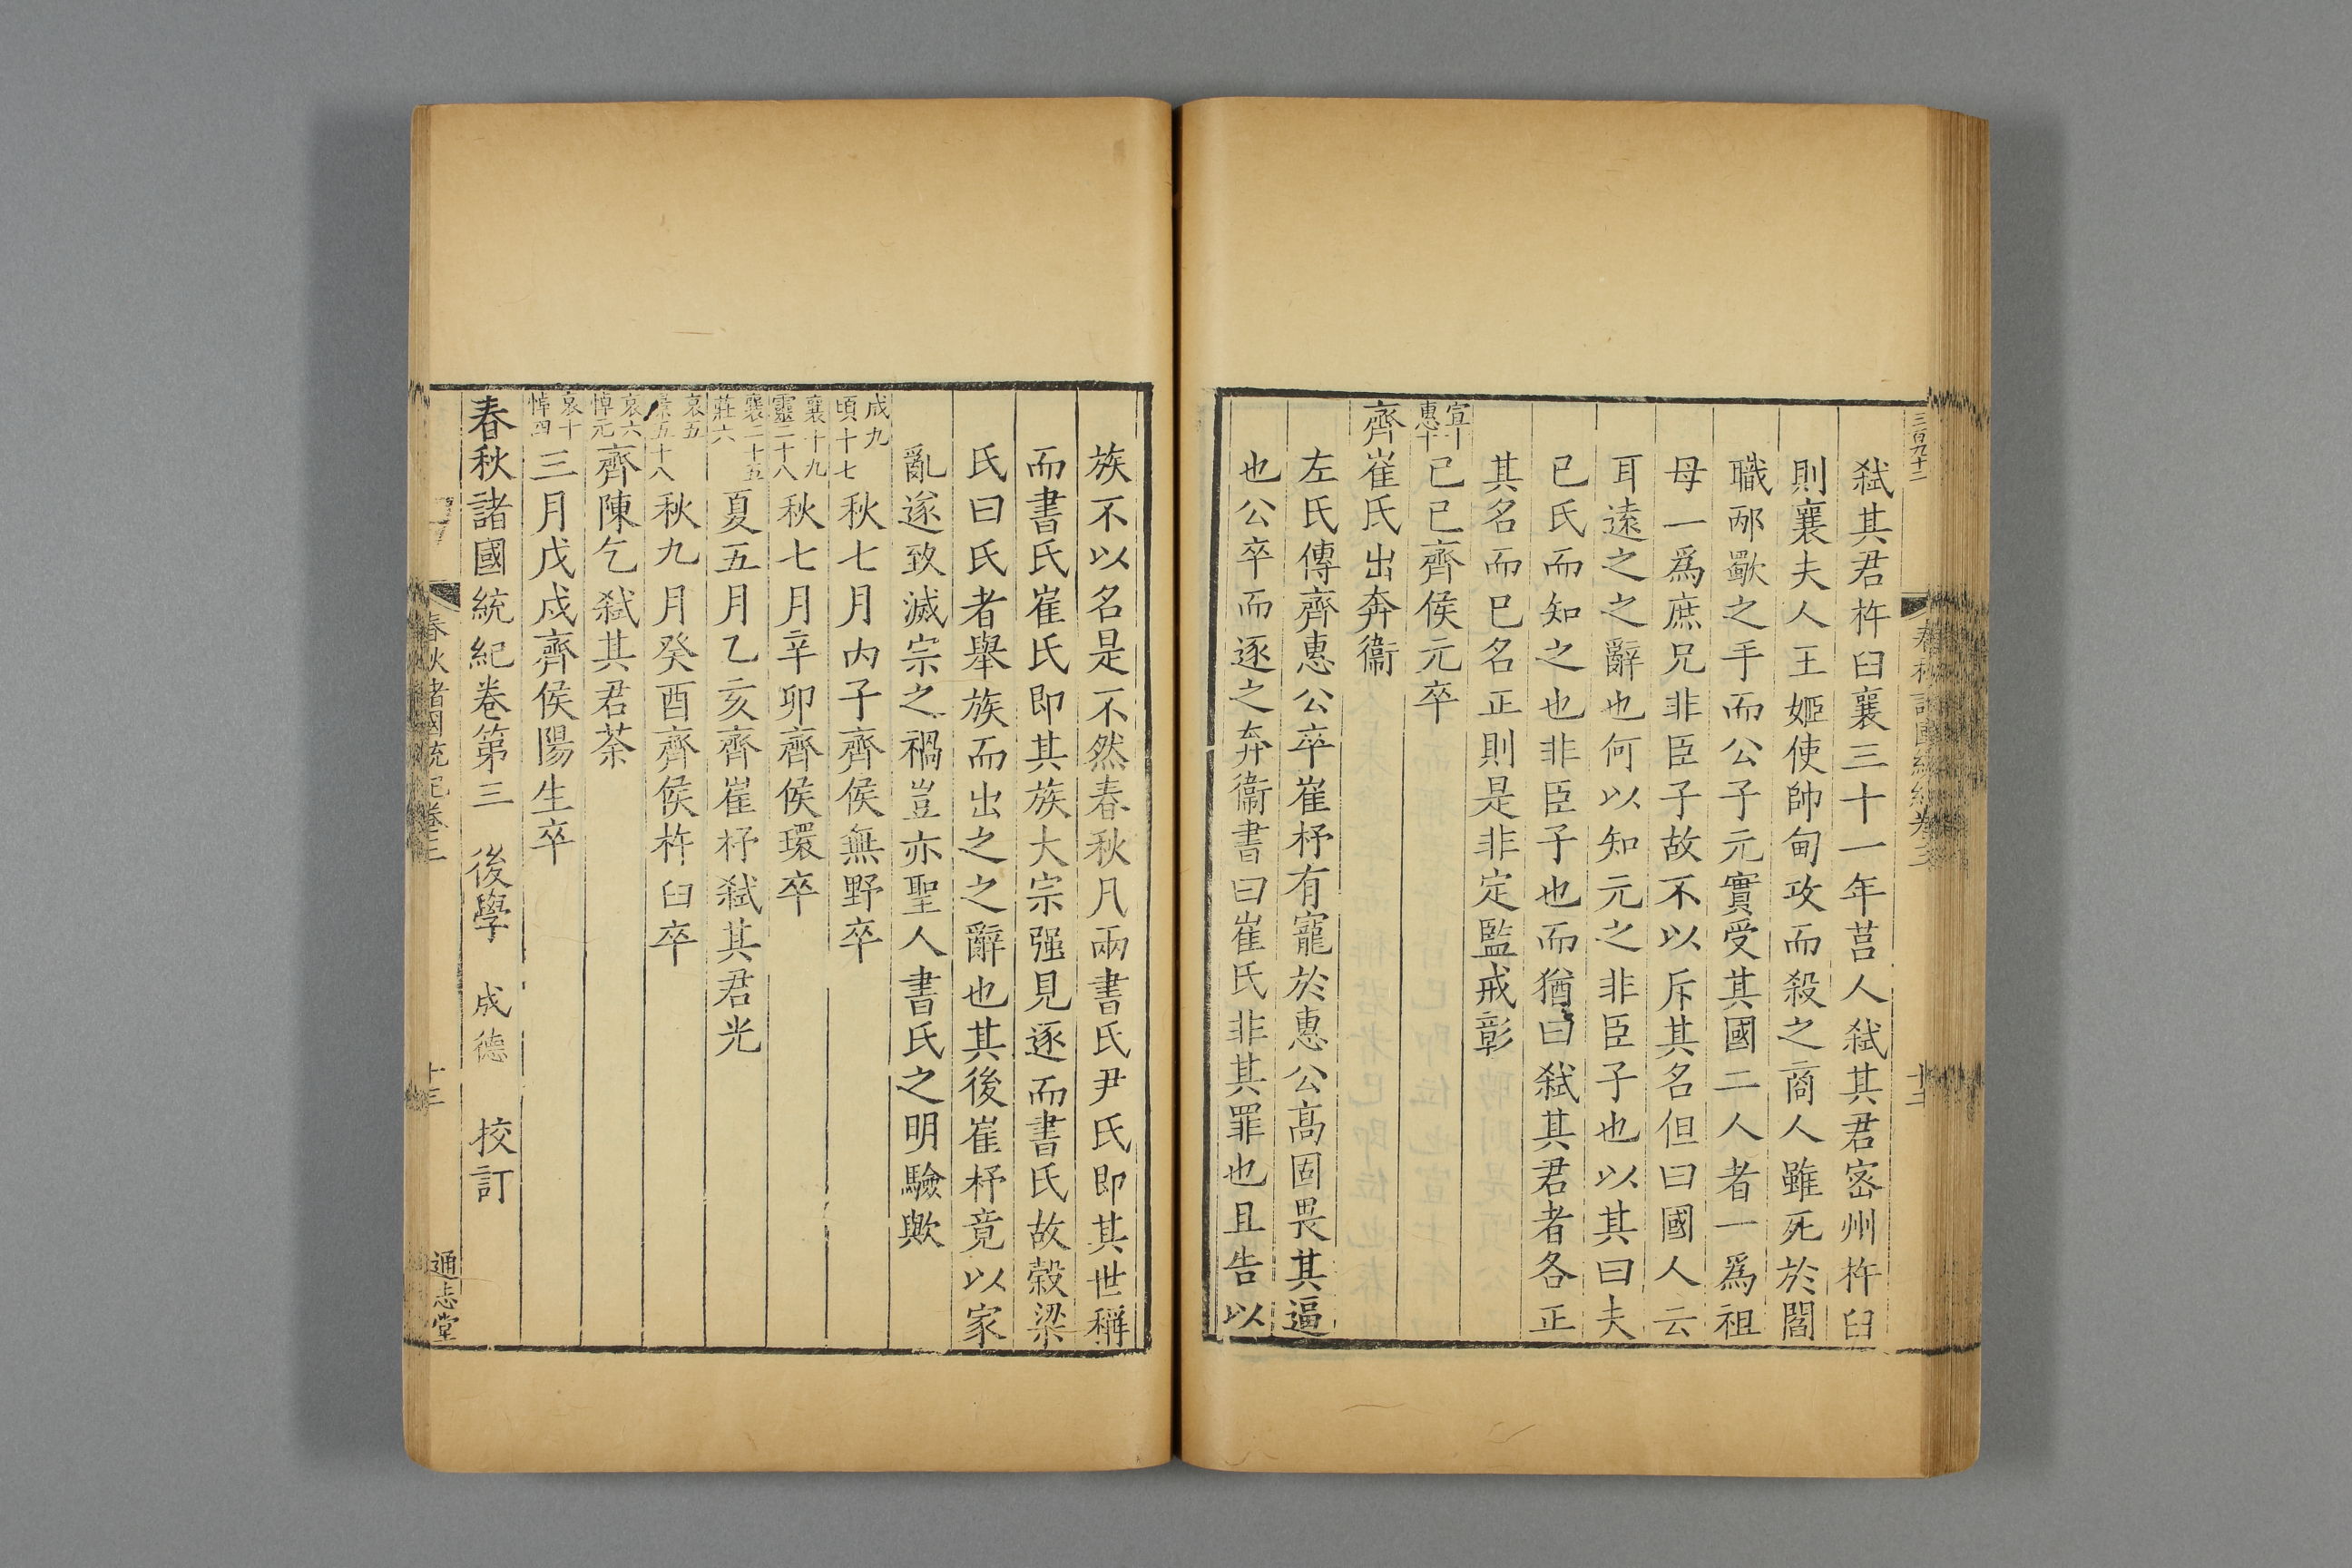 三百九十二
弑其君杵臼襄三十一年莒人弑其君密州杵臼
則襄夫人王姬使帥甸攻而殺之商人雖死於閻
職邴歜之手而公子元實受其國二人者一爲祖
母一爲庶兄非臣子故不以斥其名但曰國人云
耳遠之之辭也何以知元之非臣子也以其曰夫
已氏而知之也非臣子也而猶曰弑其君者各正
其名而已名正則是非定監戒彰
宣十
惠十
已巳齊侯元卒
齊崔氏出奔衞
左氏傳齊惠公卒崔杼有寵於惠公髙固畏其逼
也公卒而逐之奔衞書曰崔氏非其罪也且告以
族不以名是不然春秋凡兩書氏尹氏即其世稱
而書氏崔氏即其族大宗强見逐而書氏故榖梁
氏曰氏者舉族而出之之辭也其後崔杼竟以家
亂遂致滅宗之禍豈亦聖人書氏之明驗歟
成九
頃十七
秋七月丙子齊侯無野卒
襄十九
靈二十八
秋七月辛卯齊侯環卒
襄二十五
莊六
夏五月乙亥齊崔杼弑其君光
哀五
景五十八
秋九月癸酉齊侯杵臼卒
哀六
悼元
齊陳乞弑其君荼
哀十
悼四
三月戊戌齊侯陽生卒
春秋諸國統紀卷第三 後學 成德 校訂
春秋諸國統紀卷三
十三
通志堂